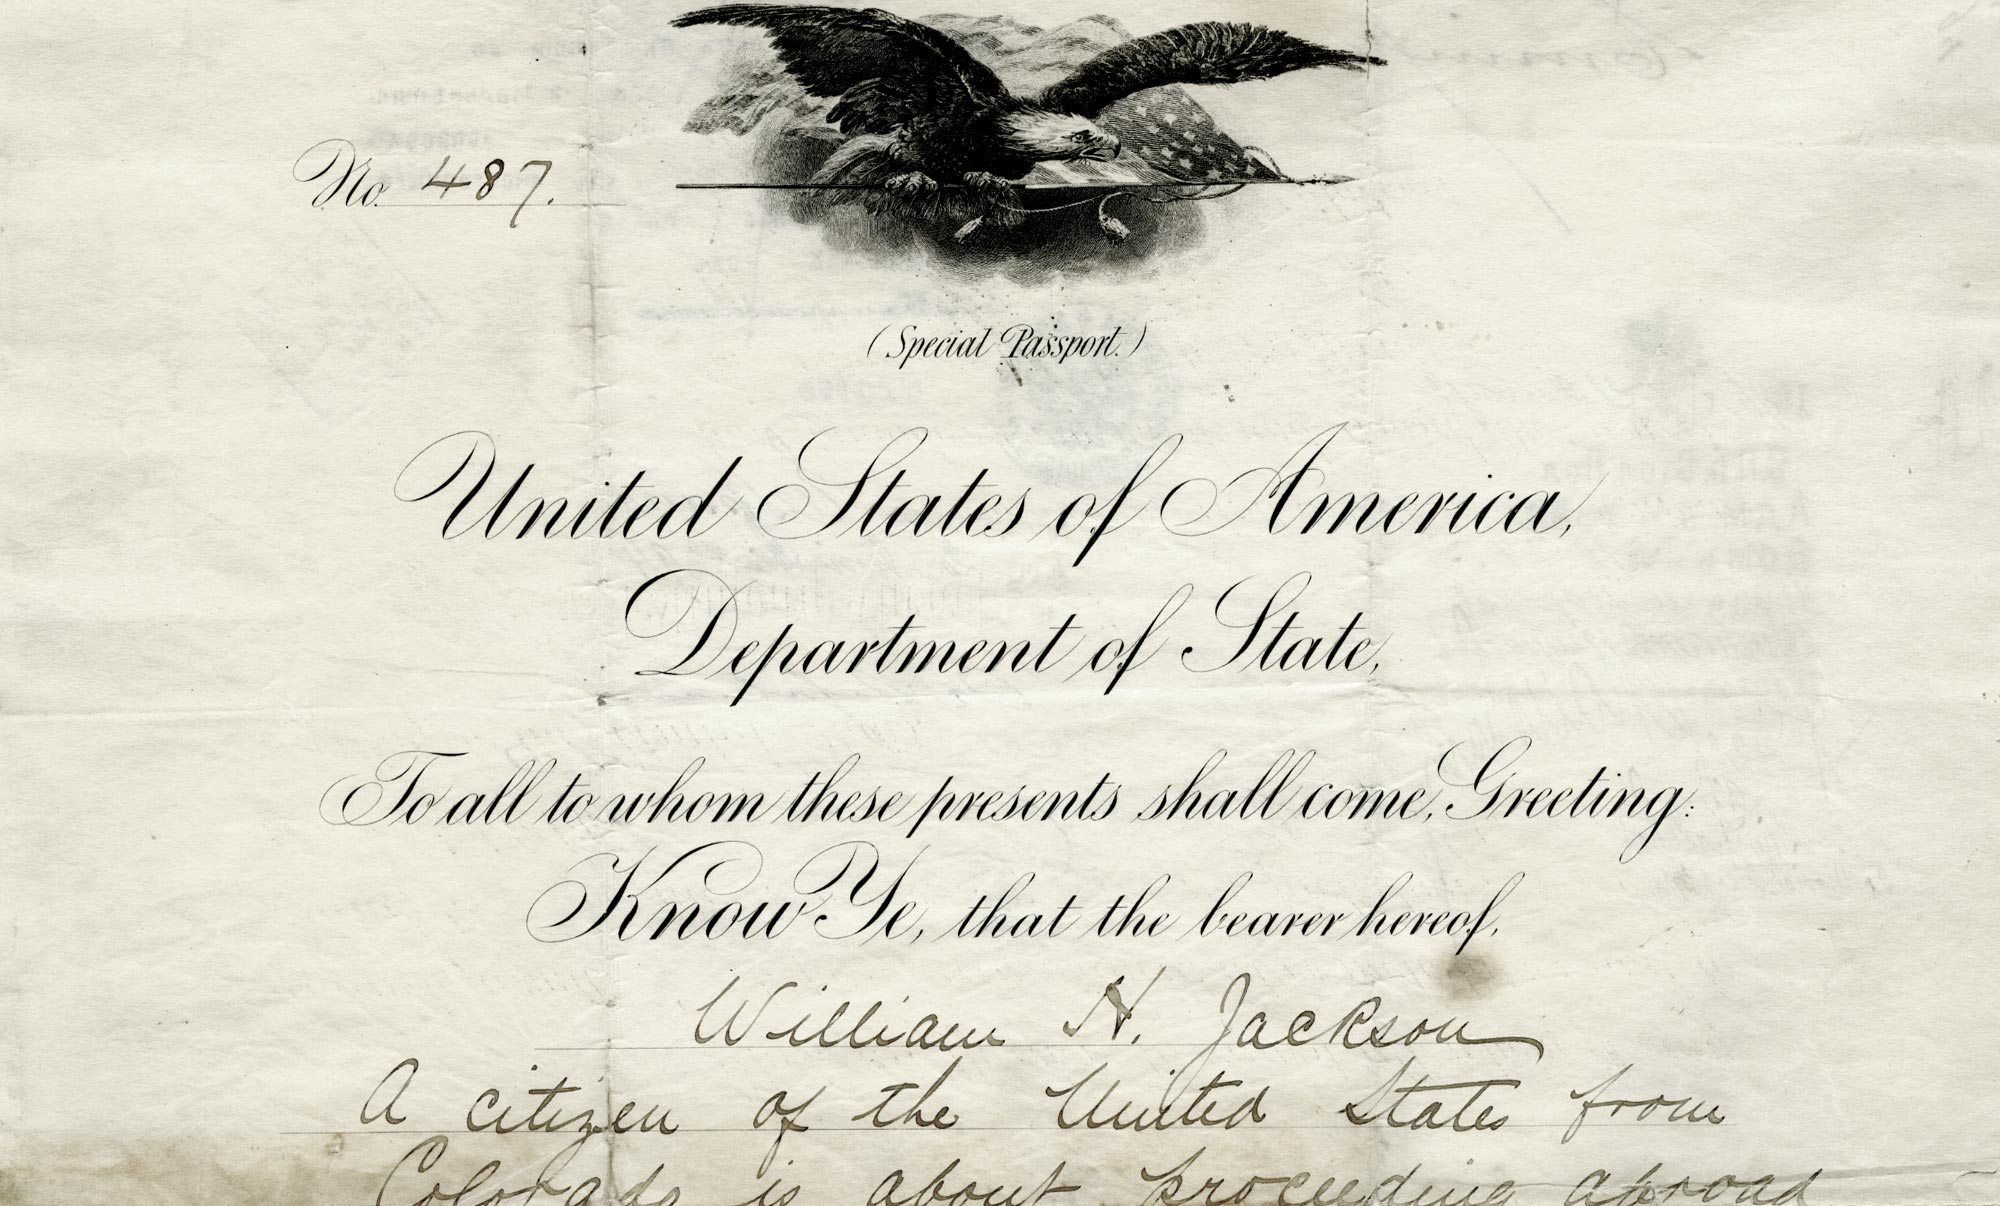 No. 487.
(Special Passport.)
United States of America,
Department of State,
To all to whom these presents shall come, Greeting:
Know Ye, that the bearer hereof,
William H. Jackson
A citizen of the United States from
Colorado is about proceeding abroad